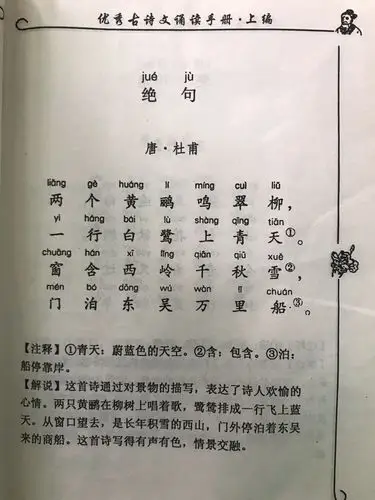 优秀古诗文诵读手册·上编
jué jù
绝句
唐·杜甫
liǎng gè huáng lí míng cuì liǔ
两个黄鹂鸣翠柳，
yì háng bái lù shàng qīng tiān
一行白鹭上青天①。
chuāng hán xī lǐng qiān qiū xuě
窗含西岭千秋雪②，
mén bó dōng wú wàn lǐ chuán
门泊东吴万里船③。
【注释】①青天：蔚蓝色的天空。②含：包含。③泊：
船停靠岸。
【解说】这首诗通过对景物的描写，表达了诗人欢愉的
心情。两只黄鹂在柳树上唱着歌，鹭鸶排成一行飞上蓝
天。从窗口望去，是长年积雪的西山，门外停泊着东吴
来的商船。这首诗写得有声有色，情景交融。